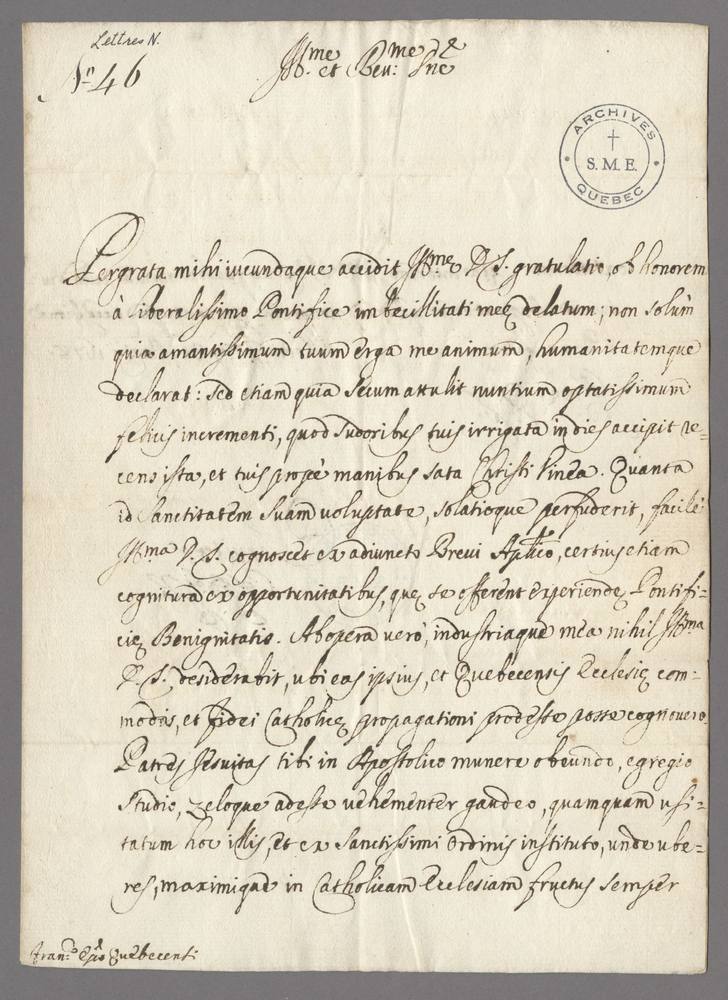 Lettres N.
N.º 46
Ill.me et Rev.me Dñe
ARCHIVES
S. M. E.
QUEBEC
Pergrata mihi iucundaque accidit Ill.me D. S. gratulatio, ob honorem
à liberalissimo Pontifice imbecillitati meę delatum; non solùm
quia amantissimum tuum erga me animum, humanitatemque
declarat: sed etiam quia secum attulit nuntium optatissimum
felicis incrementi, quod sudoribus tuis irrigata in dies accipit re=
cens ista, et tuis propè manibus sata Christi Vinea. Quanta
id Sanctitatem Suam voluptate, solatioque perfuderit, facilè
Ill.ma D. S. cognoscet ex adiuncto Brevi Aplico, certius etiam
cognitura ex opportunitatibus, quę se offerent experiendę Pontifi=
cię Benignitatis. Ab opera verò, industriaque mea nihil Ill.ma
D. S. desiderabit, ubi eas ipsius, et Quebecensis Ecclesię com=
modis, et fidei Catholicę propagationi prodesse posse cognovero.
Patres Jesuitas tibi in Apostolico munere obeundo, egregio
studio, zeloque adesse vehementer gaudeo, quamquam usi=
tatum hoc illis, et ex sanctissimi ordinis instituto, unde ube=
res, maximique in Catholicam Ecclesiam fructus semper
Fran.co Epo Quebecensi